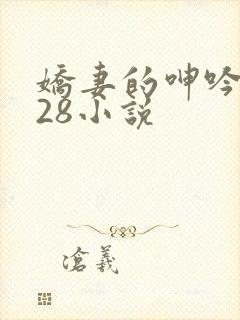 嬌妻的呻吟
28小說
滄義